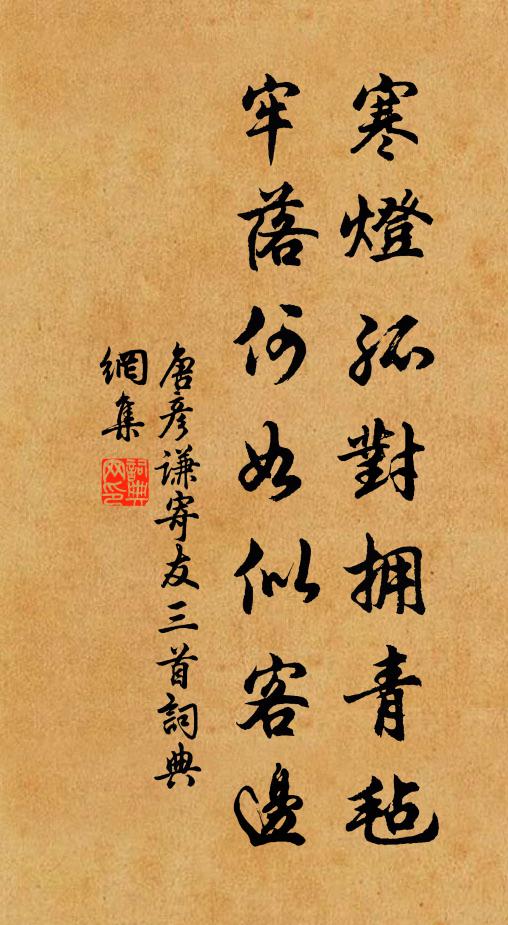 寒燈孤對拥青毡
牢落何如似客邊
唐彥謙寄友三首詞典
網集
詞典網印